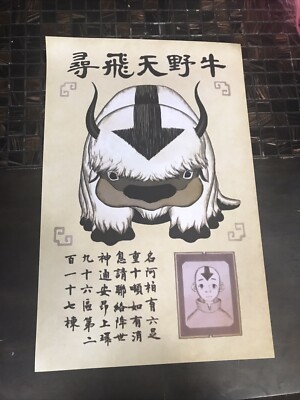 尋飛天野牛
名阿柏有六足
重十頓如有消
息請聯絡降世
神通安昂上環
九十六區第二
百一十七棟